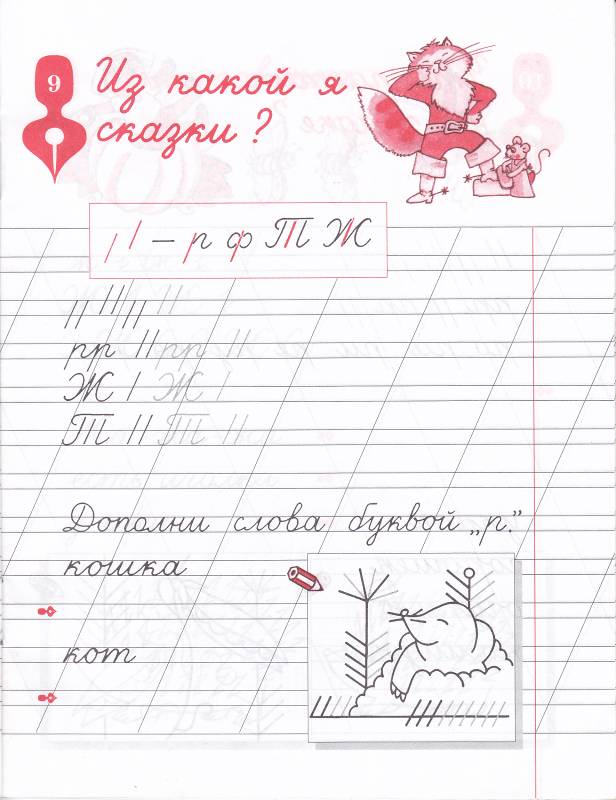 9
Из какой я
сказки?
— р ф Т Ж
рр рр
Ж Ж
Т Т
Дополни слова буквой „р."
кошка
кот